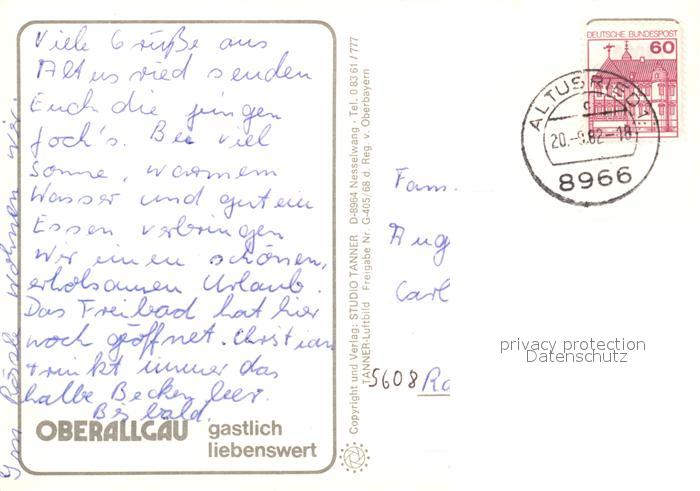 Viele Grüße aus
Altusried senden
Euch die jungen
Joch's. Bei viel
Sonne, warmem
Wasser und gutem
Essen verbringen
wir einen schönen,
erholsamen Urlaub.
Das Freibad hat hier
noch geöffnet. Christian
trinkt immer das
halbe Becken leer.
Bis bald.
wohnen wir.
OBERALLGÄU gastlich
liebenswert
Copyright und Verlag: STUDIO TANNER D-8964 Nesselwang · Tel. 0 83 61 / 777
TANNER-Luftbild Freigabe Nr. G-405/68 d. Reg. v. Oberbayern
DEUTSCHE BUNDESPOST
60
ALTUSRIED 1
c
20.-9.82-18
8966
Fam.
Aug
Carl
5608 Ra
privacy protection
Datenschutz